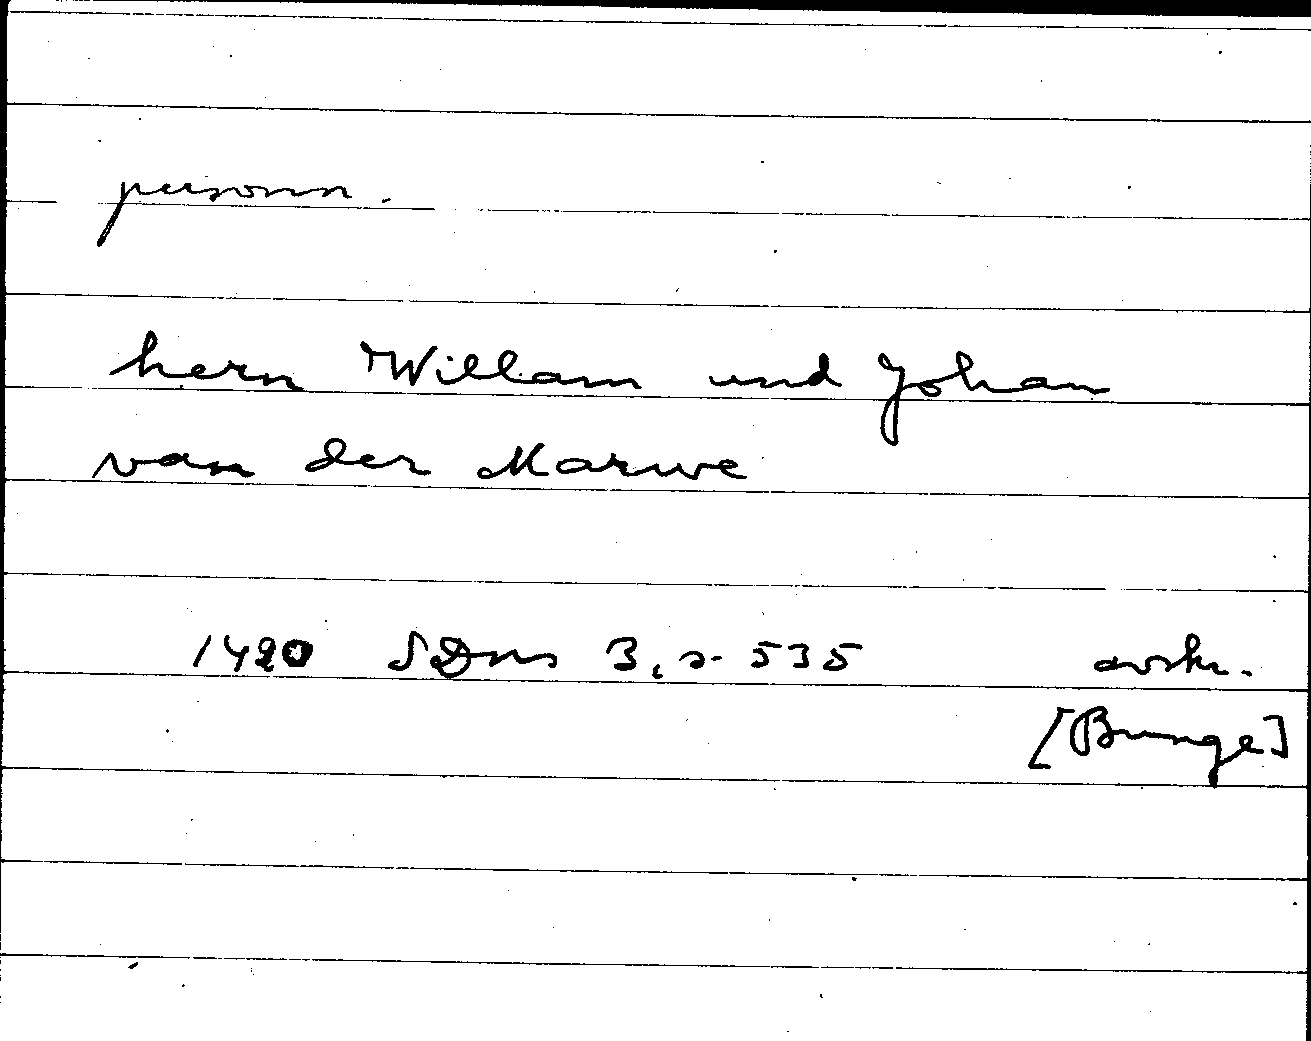 personn.
hern Willam und Johan
van der Marwe
1420 SDns 3, s. 535 avskr.
[Bunge]